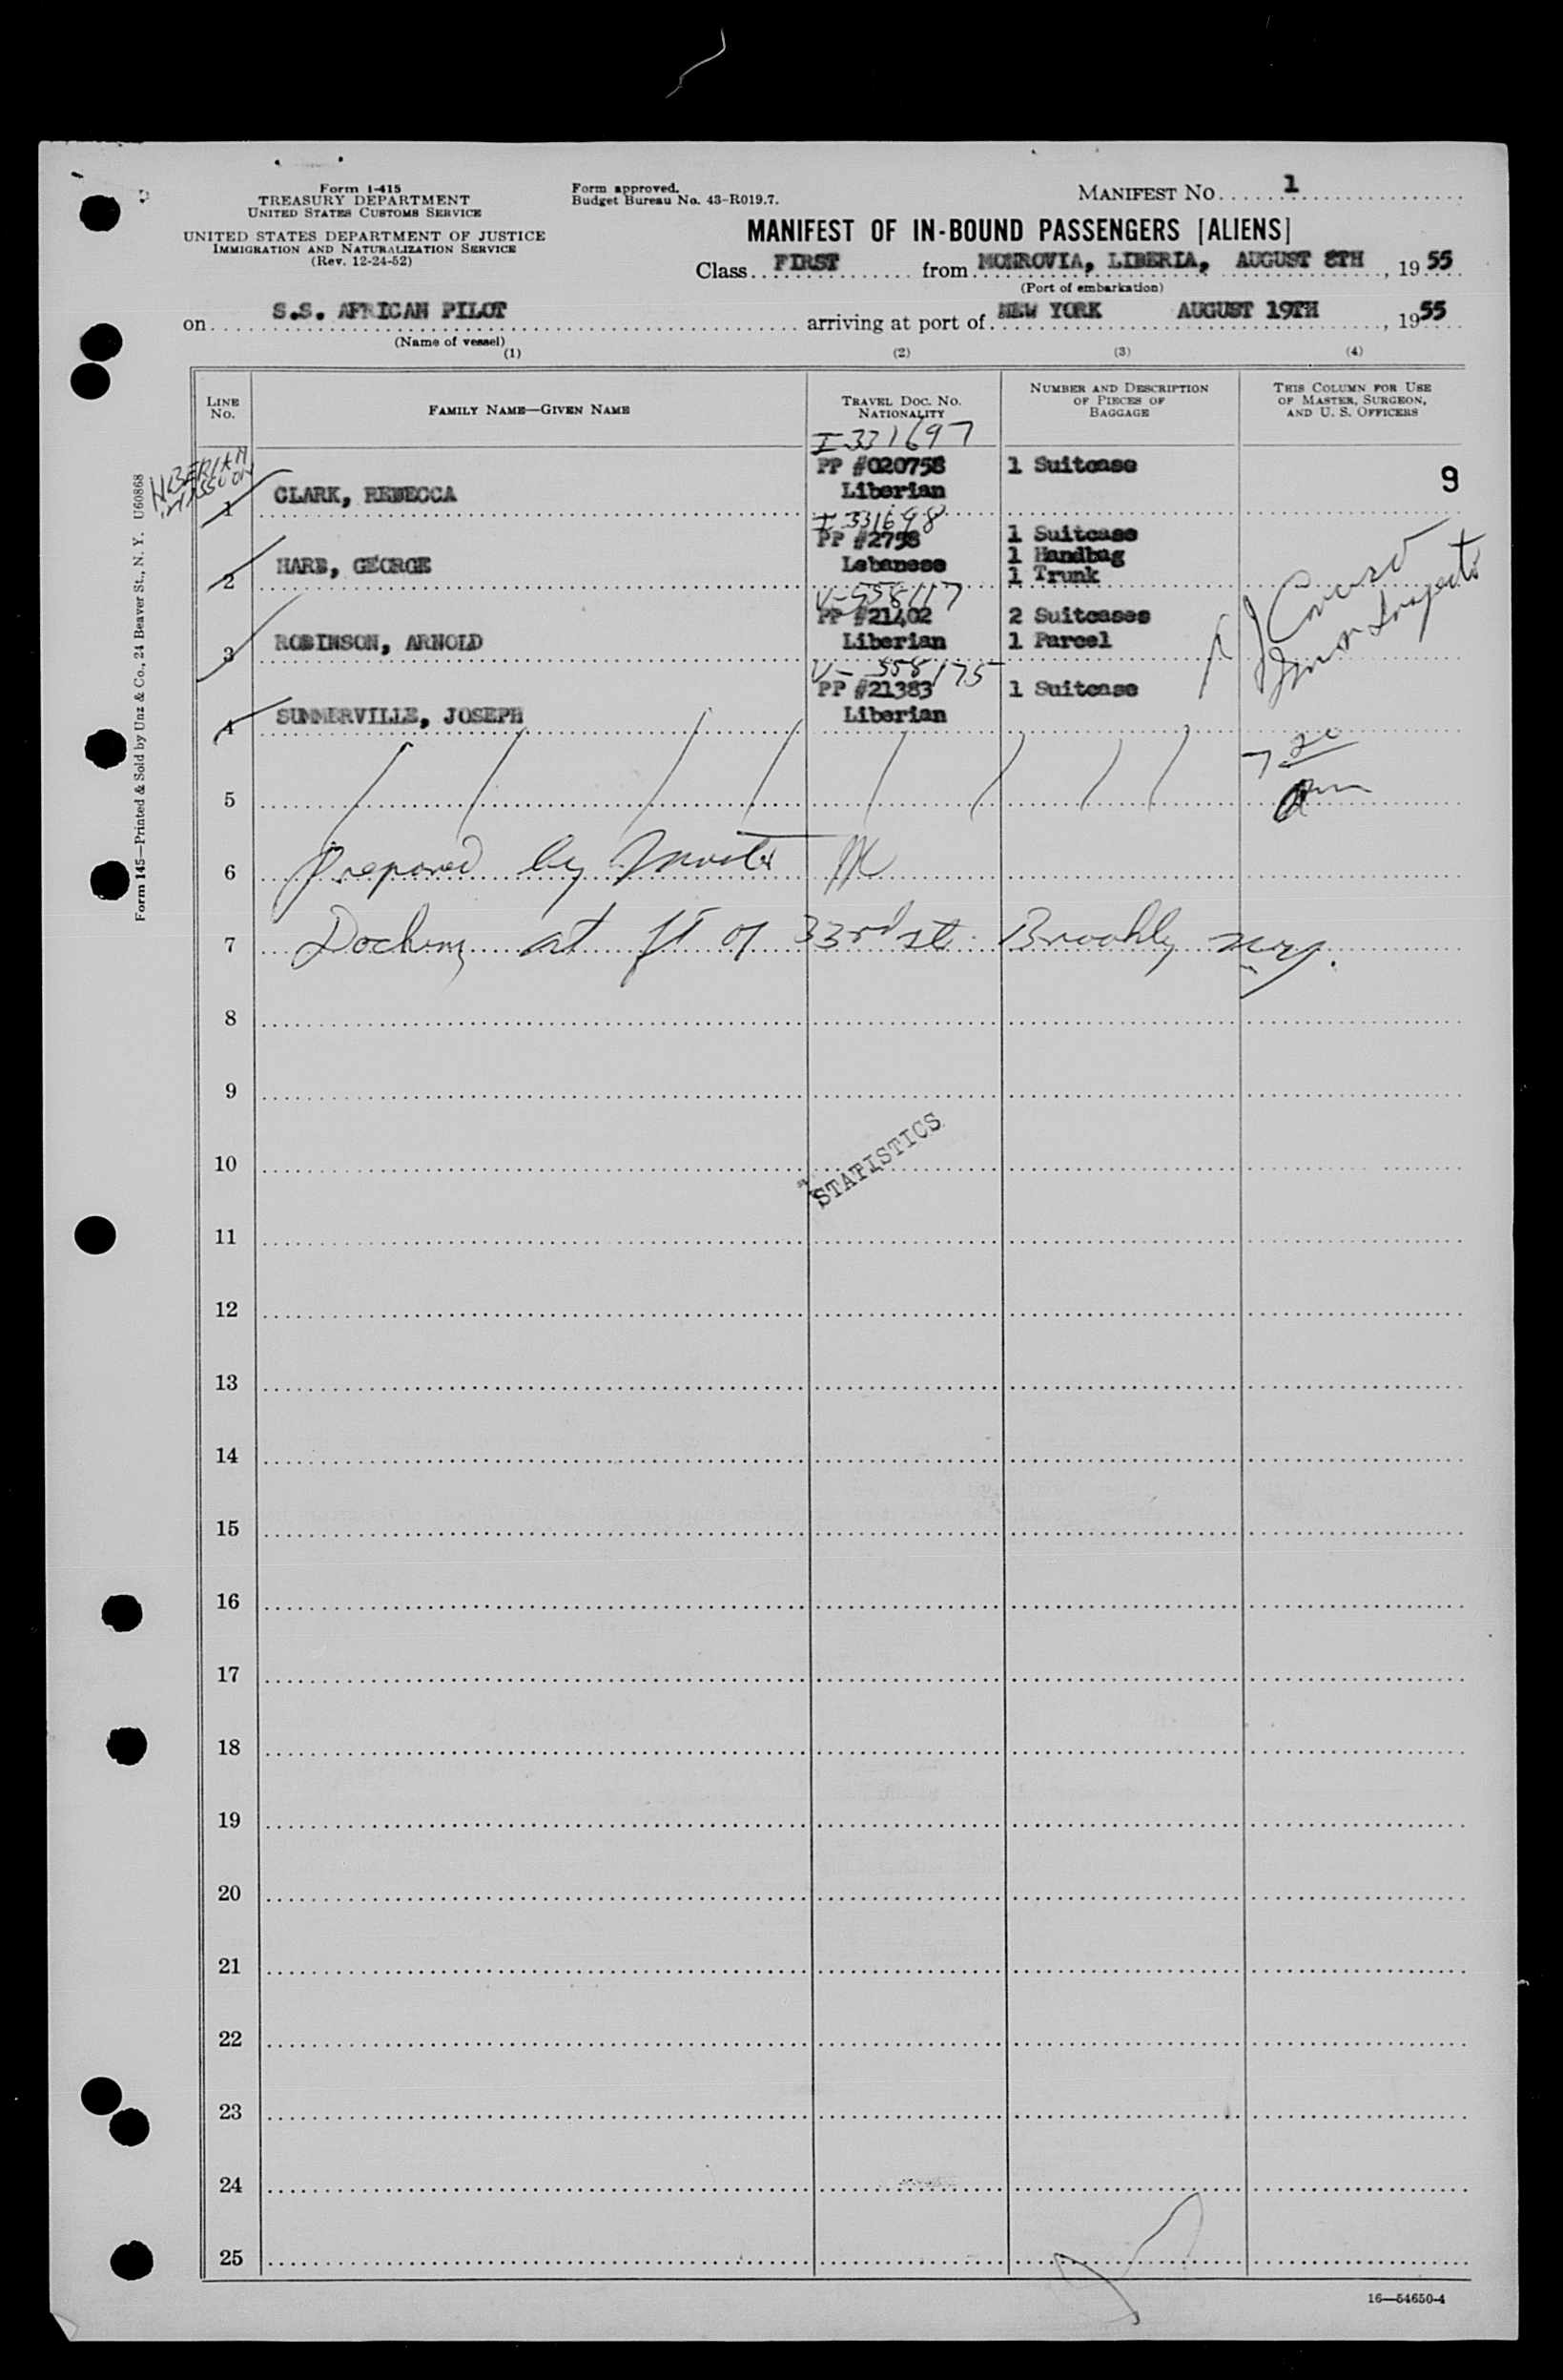 Form I-415
TREASURY DEPARTMENT
UNITED STATES CUSTOMS SERVICE
UNITED STATES DEPARTMENT OF JUSTICE
IMMIGRATION AND NATURALIZATION SERVICE
(Rev. 12-24-52)
Form approved.
Budget Bureau No. 43-R019.7.
MANIFEST NO. 1
MANIFEST OF IN-BOUND PASSENGERS [ALIENS]
Class FIRST from MONROVIA, LIBERIA, AUGUST 8TH, 1955
(Port of embarkation)
on S.S. AFRICAN PILOT arriving at port of NEW YORK AUGUST 19TH, 1955
(Name of vessel)
(1) (2) (3) (4)
LINE NO.
FAMILY NAME—GIVEN NAME
TRAVEL DOC. NO.
NATIONALITY
NUMBER AND DESCRIPTION
OF PIECES OF
BAGGAGE
THIS COLUMN FOR USE
OF MASTER, SURGEON,
AND U. S. OFFICERS
I 331697
PP #020758 1 Suitcase
9
1 CLARK, REBECCA Liberian
I 331698
PP #2758 1 Suitcase
2 HARB, GEORGE Lebanese 1 Handbag
1 Trunk
V-558117
PP #21402 2 Suitcases
3 ROBINSON, ARNOLD Liberian 1 Parcel
V-558175
PP #21383 1 Suitcase
4 SUMMERVILLE, JOSEPH Liberian
Inspector
7 30
am
5
6 Prepared by
7 Docking at ft of 33rd st Brooklyn N.Y.
8
9
10
STATISTICS
11
12
13
14
15
16
17
18
19
20
21
22
23
24
25
16—54650-4
Form 145—Printed & Sold by Unz & Co., 24 Beaver St., N. Y. U60868